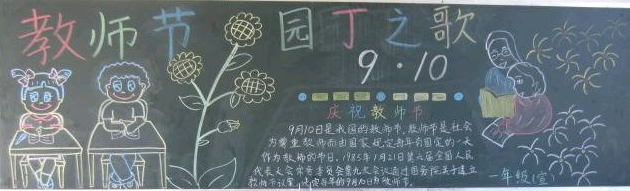 教师节 园丁之歌
9·10
庆祝教师节
9月10日是我国的教师节，教师节是社会
为尊重教师而由国家规定每年有固定的一天
作为教师的节日，1985年1月21日第六届全国人民
代表大会常务委员会第九次会议通过国务院关于建立
教师节议案，决定每年的9月10日为教师节。
一年级1宣